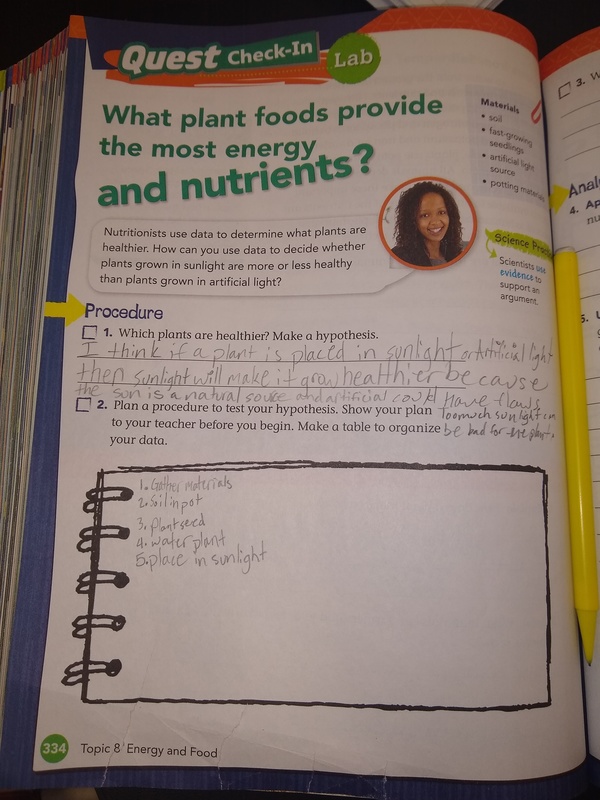 Quest Check-In Lab
What plant foods provide
the most energy
and nutrients?
Materials
• soil
• fast-growing
seedlings
• artificial light
source
• potting materials
Nutritionists use data to determine what plants are
healthier. How can you use data to decide whether
plants grown in sunlight are more or less healthy
than plants grown in artificial light?
Science Practice
Scientists use
evidence to
support an
argument.
Procedure
1. Which plants are healthier? Make a hypothesis.
I think if a plant is placed in sunlight or Artificial light
then sunlight will make it grow healthier because
the sun is a natural source and artificial could have flaws
Too much sun light can
be bad for the plant.
2. Plan a procedure to test your hypothesis. Show your plan
to your teacher before you begin. Make a table to organize
your data.
1. Gather materials
2. Soil in pot
3. plant seed
4. water plant
5. place in sunlight
334 Topic 8 Energy and Food
3. W
Anal
4. Ap
nu
5. U